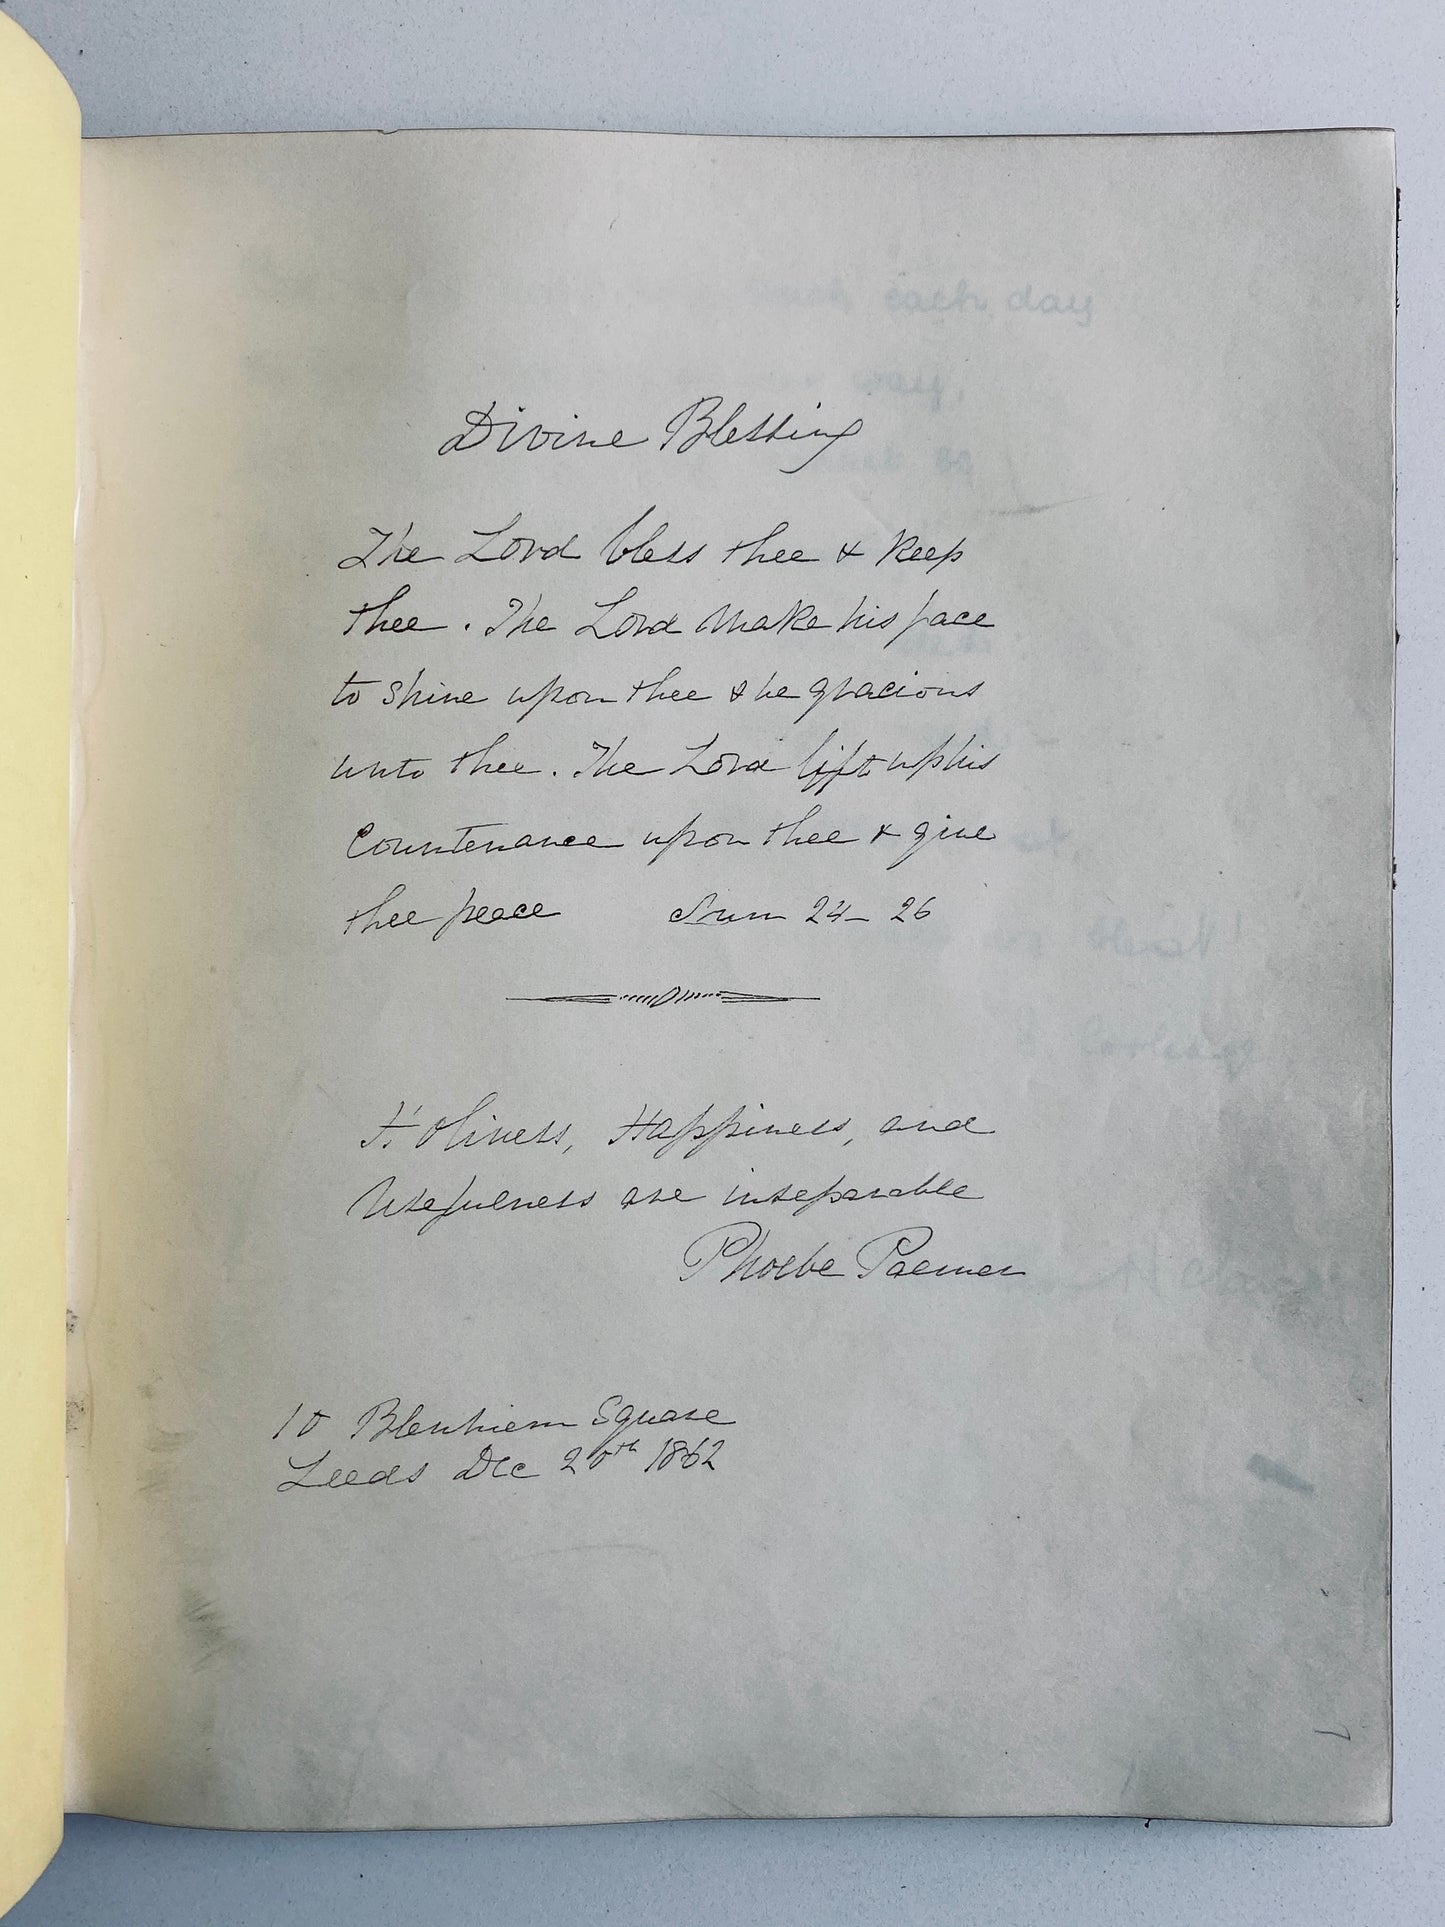 Divine Blessing
The Lord bless thee & keep
thee. The Lord make his face
to shine upon thee & be gracious
unto thee. The Lord lift up his
Countenance upon thee & give
thee peace Num 24-26
Holiness, Happiness, and
Usefulness are inseparable
Phoebe Palmer
10 Blenhiem Square
Leeds Dec 20th 1862
each day
way,
blest!